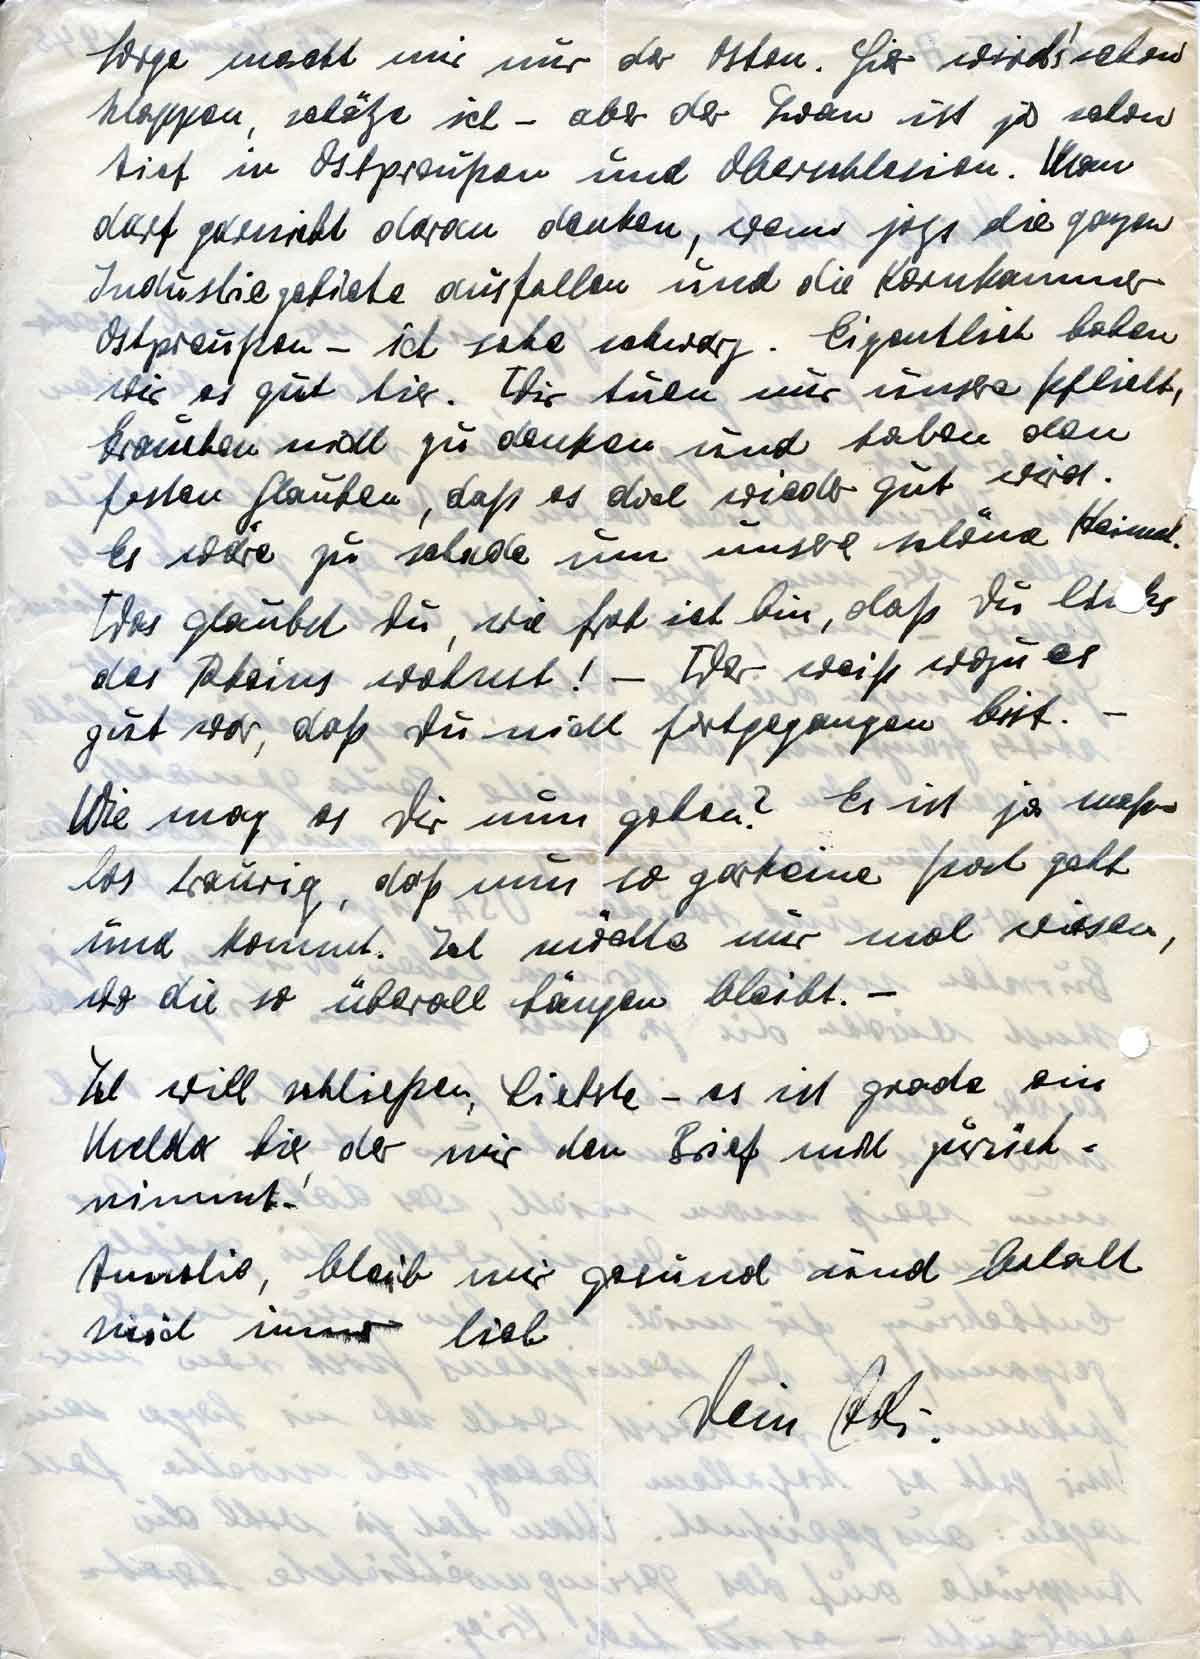 Sorge macht mir nur der Osten. Hier wird's schon
klappen, schätze ich – aber der Iwan ist ja schon
tief in Ostpreußen und Oberschlesien. Man
darf garnicht daran denken, wenn jetzt die ganzen
Industriegebiete ausfallen und die Kornkammer
Ostpreußen – ich sehe schwarz. Eigentlich haben
wir es gut hier. Wir tuen nur unsere Pflicht,
brauchen nicht zu denken und haben den
festen Glauben, daß es doch wieder gut wird.
Es wäre zu schade um unsere schöne Heimat.
Was glaubst Du, wie froh ich bin, daß Du links
des Rheins wohnst! – Wer weiß wozu es
gut war, daß Du nicht fortgegangen bist. –
Wie mag es Dir nun gehen? Es ist ja maß-
los traurig, daß nun so garkeine Post geht
und kommt. Ich möchte nur mal wissen,
wo die so überall hängen bleibt. –
Ich will schließen, Liebste – es ist grade ein
Melder hier, der mir den Brief mit zurück-
nimmt!
Annelie, bleib mir gesund und behalt
mich immer lieb
Dein